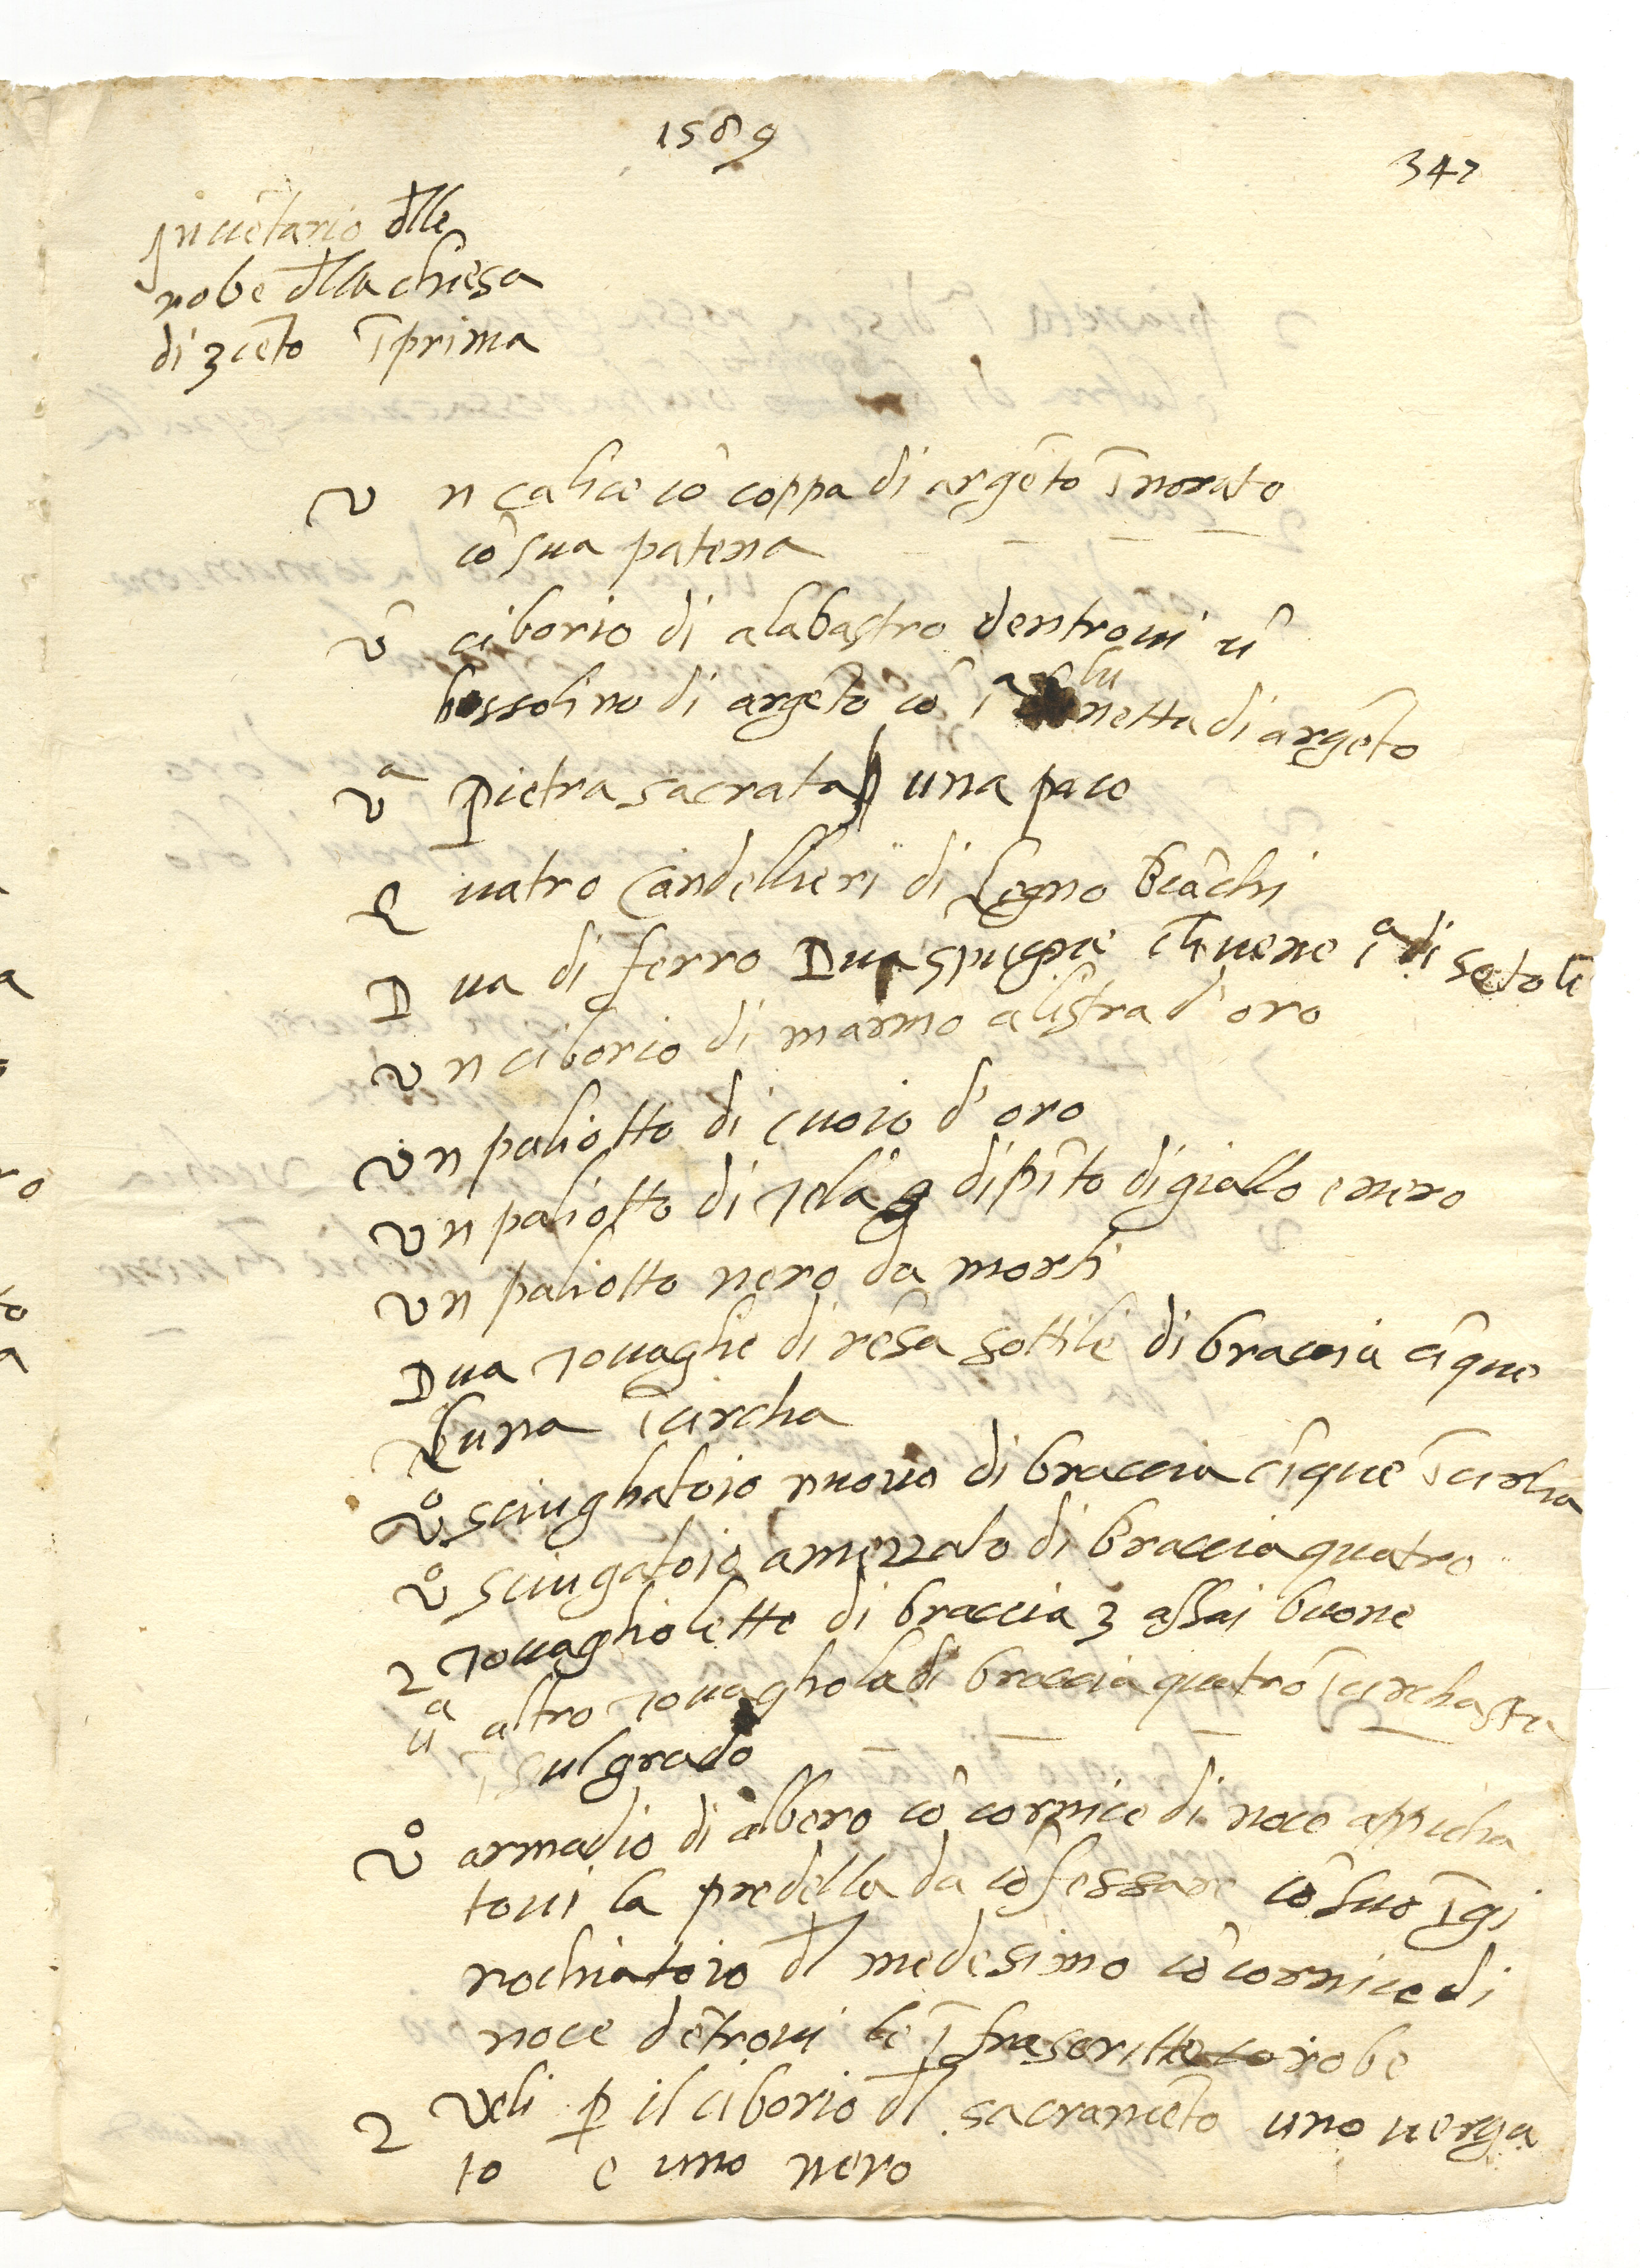 1589
347
Inuētario dlle
robe dlla chiesa
di 3cēto īprima
Un calice cō coppa di argēto īnorato
cō sua patena
ū ciborio di alabastro dentroui ū
bossolino di argēto cō 1ª lunetta di argēto
Uª Pietra sacrata una pace
Quatro Candellieri di Legno Biāchi
Dua di ferro Dua spugne 1ª di setole
Un ciborio di marmo alistra d'oro
Un paliotto di cuoio d'oro
Un paliotto di tela dipīto di giallo e nero
Un paliotto nero da morti
Dua touaglie di rēsa sottile di braccia cīque
Luna īcircha
Uº sciughatoio nuouo di braccia cīque īcircha
Uº sciugatoio amezzato di braccia quatro
2 touagliolette di braccia 3 assai buone
uª altro touaghola di braccia quatro īcircha sta
ī sul grado
Uº armadio di albero cō cornice di noce appicha
toui la predella da cōfessare cō suo īgi
nochiatoio dl medesimo cō cornice di
noce dētroui le īfrascritte robe
2 Veli p il ciborio dl sacramēto uno uerga
to e uno nero